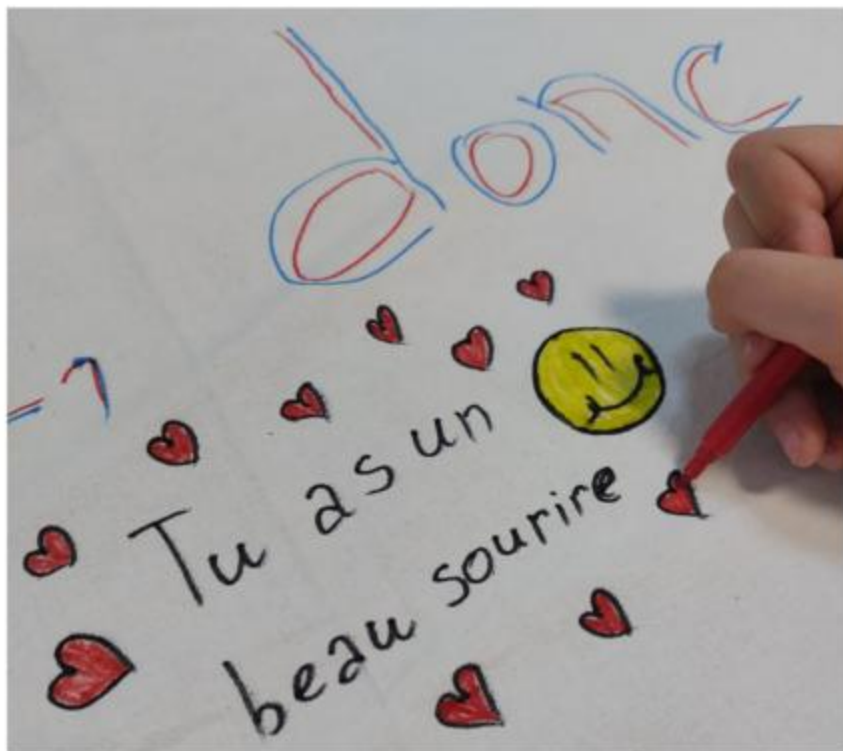 donc
Tu as un
beau sourire